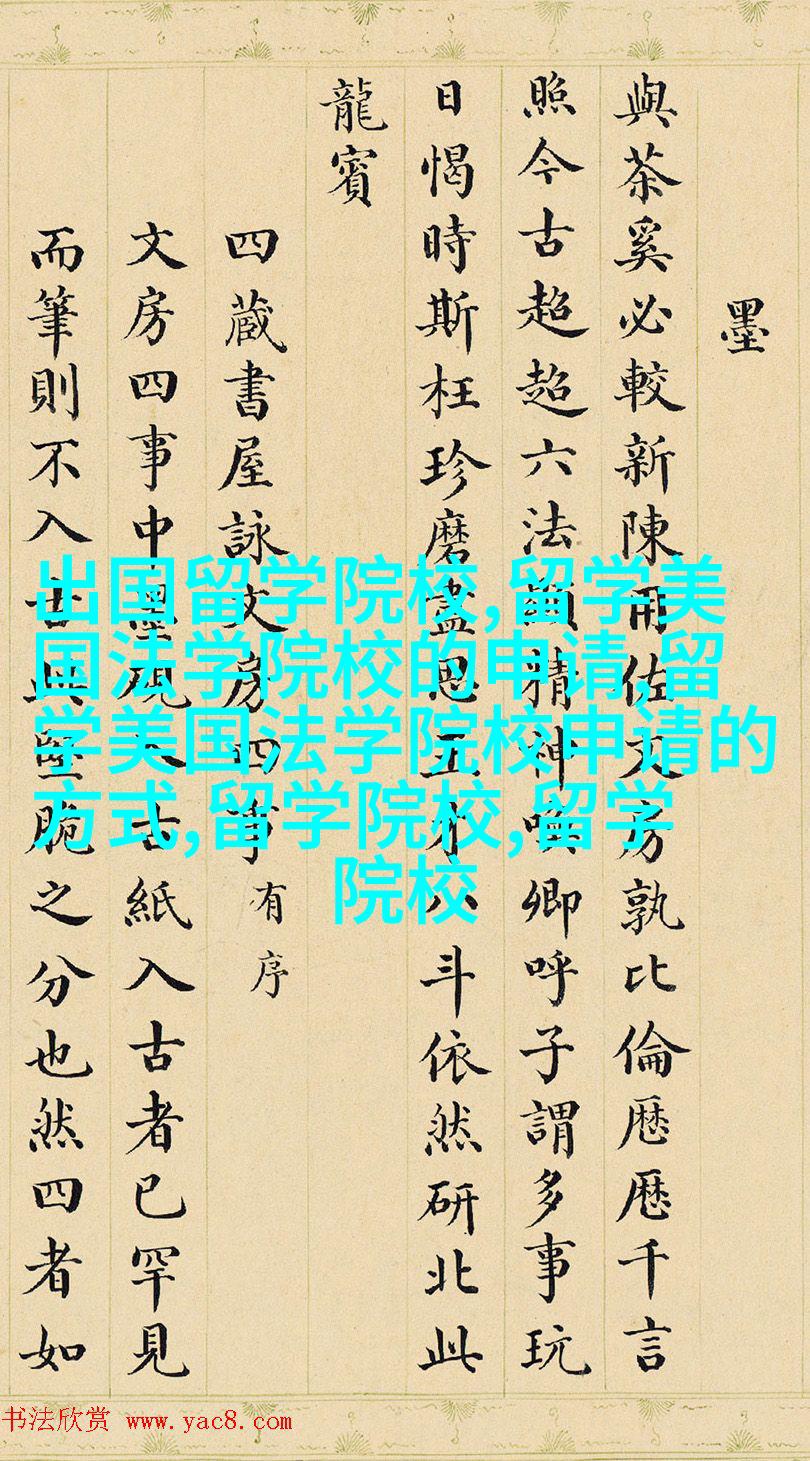 墨
與茶奚必較新陳用佐文房孰比倫厯厯千言
照今古超超六法精神喚卿呼子謂多事玩
日愒時斯枉珍磨盡思王才八斗依然研北此
龍賓
四蔵書屋詠文房四事有序
文房四事中墨硯入古紙入古者已罕見
而筆則不入古與堅脆之分也然四者如
出国留学院校,留学美
国法学院校的申请,留
学美国法学院校申请的
方式,留学院校,留学
院校
书法欣赏 www.yac8.com